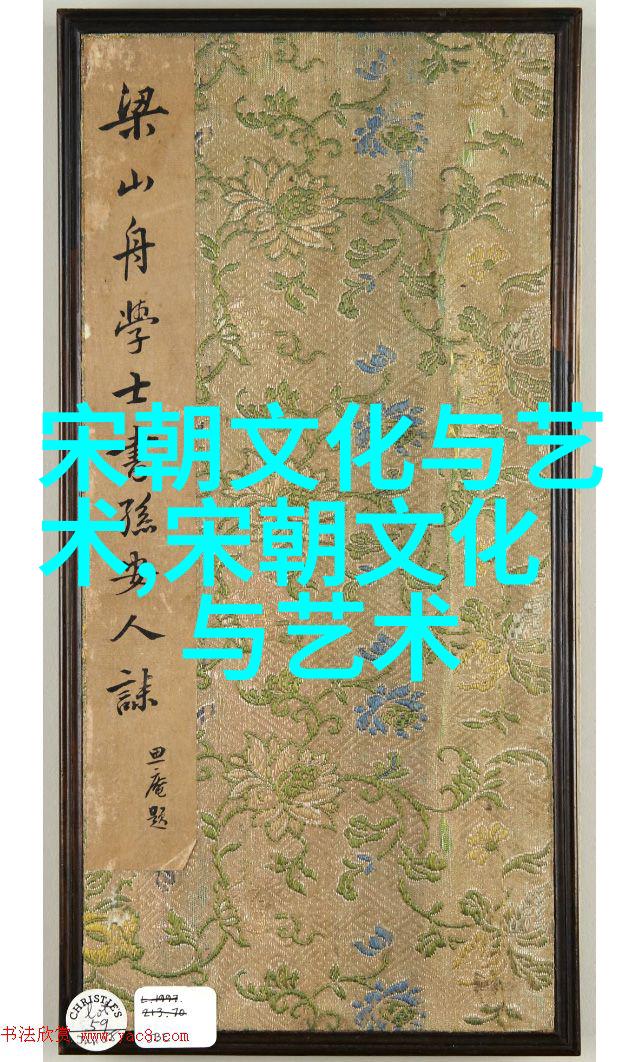 梁山舟學士書孫安人誄
思庵題
宋朝文化与艺
术,宋朝文化
与艺术
CHRISTIE'S
Lot
59
L.1997.
213.70
书法欣赏 www.yac8.com